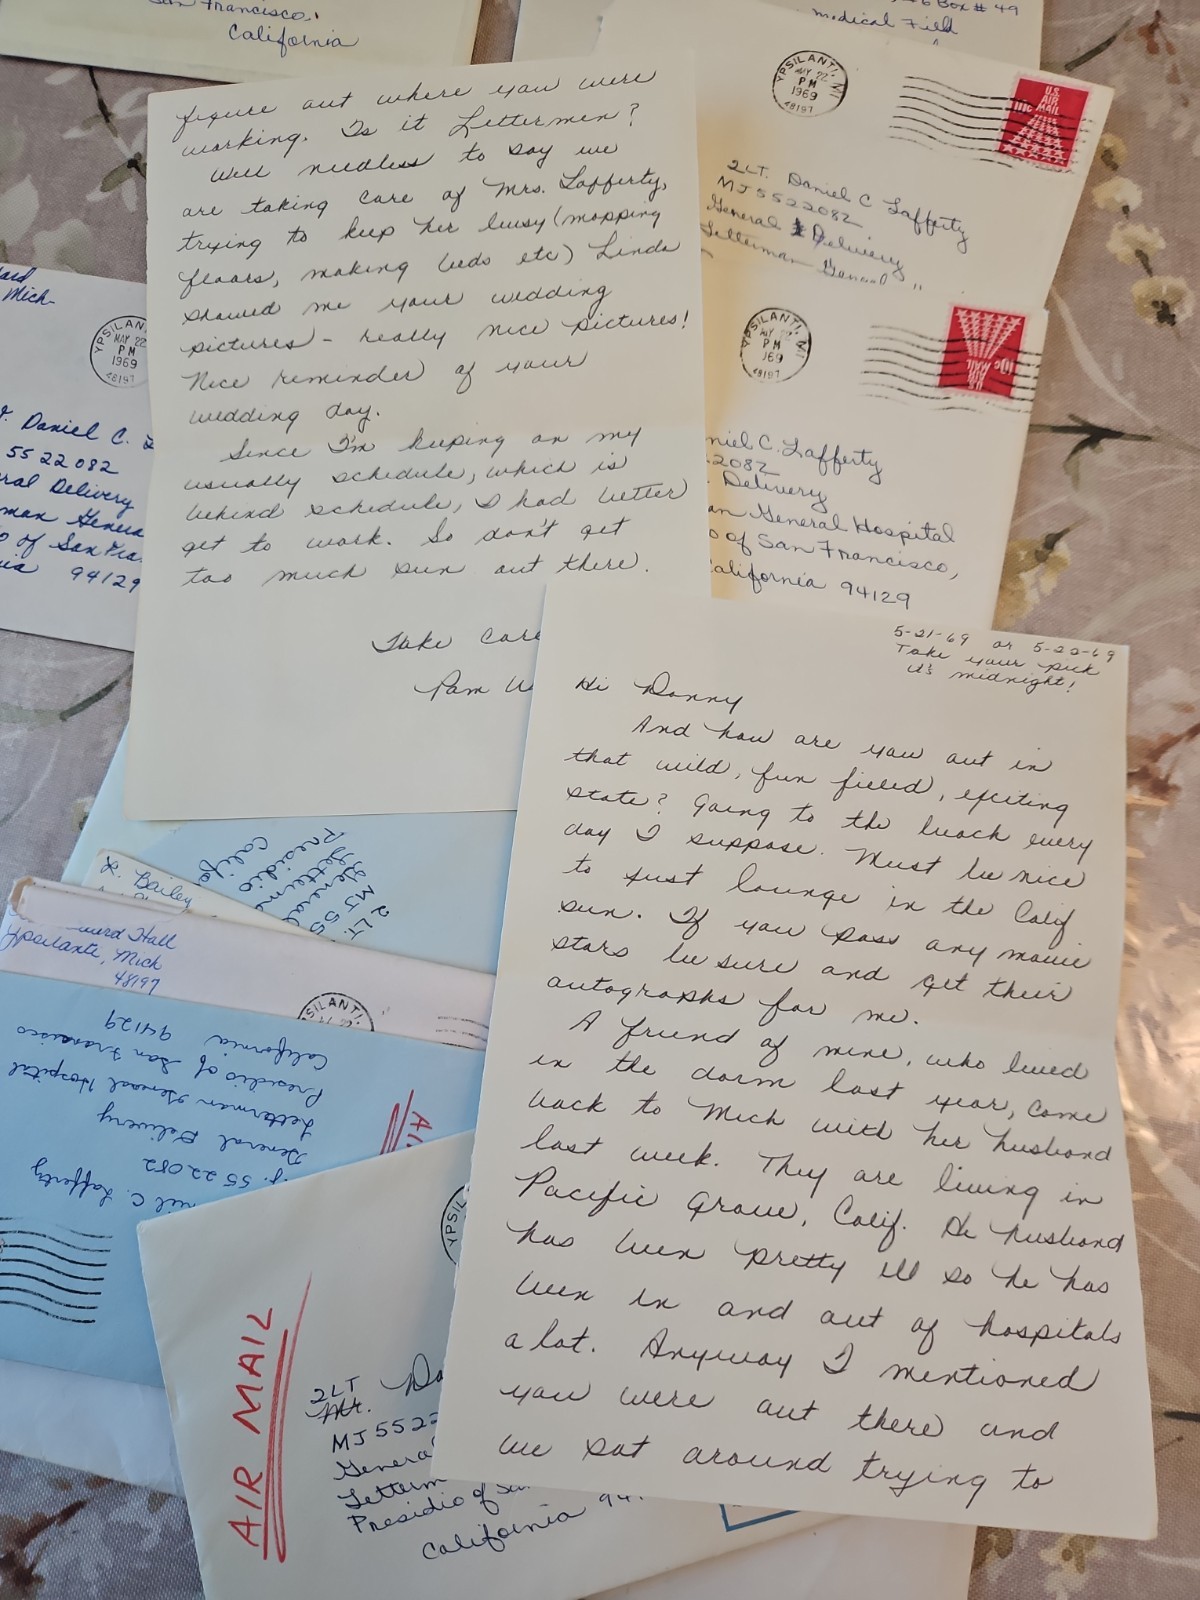 San Francisco,
California
Box # 49
Medical Field
YPSILANTI, MI
MAY 22
PM
1969
48197
U.S.
AIR
MAIL
10c
2LT. Daniel C Lafferty
MJ5522082
General Delivery
Letterman General
YPSILANTI, MI
PM
1969
48197
10c
U.S.
AIR MAIL
niel C. Lafferty
2082
Delivery
an General Hospital
o of San Francisco,
California 94129
Mich
YPSILANTI
MAY 22
PM
1969
48197
Daniel C. L
55 22 082
ral Delivery
man Genera
o of San Fra
ia 94129
figure out where you were
working. Is it Lettermen?
Well needless to say we
are taking care of Mrs. Lafferty,
trying to keep her busy (mopping
floors, making beds etc) Linda
showed me your wedding
pictures - really nice pictures!
Nice reminder of your
wedding day.
Since I'm keeping on my
usually schedule, which is
behind schedule, I had better
get to work. So don't get
too much sun out there.
Take Care
Pam W
5-21-69 or 5-22-69
Take your pick
it's midnight!
Hi Danny
And how are you out in
that wild, fun filled, exciting
state? Going to the beach every
day I suppose. Must be nice
to just lounge in the Calif
sun. If you pass any movie
stars be sure and get their
autographs for me.
A friend of mine, who lived
in the dorm last year, came
back to Mich with her husband
last week. They are living in
Pacific Grove, Calif. He husband
has been pretty ill so he has
been in and out of hospitals
a lot. Anyway I mentioned
you were out there and
we sat around trying to
2LT.
MJ 55
General
Letterm
Presidio
Calif
L. Bailey
Hall
Ypsilante, Mich
48197
SILANTI,
niel C. Lafferty
55 22 082
General Delivery
Letterman General Hospital
Presidio of San Francisco
California 94129
AI
YPSIL
AIR MAIL
2LT Da
Mr.
MJ 5522
General
Letterm
Presidio of San
California 94